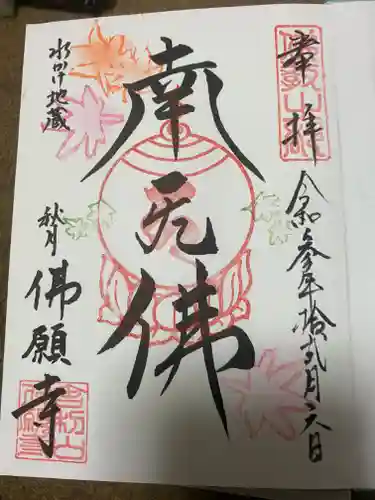 奉拝
令和参年拾弐月六日
南无佛
水かけ地蔵
秋月
佛願寺